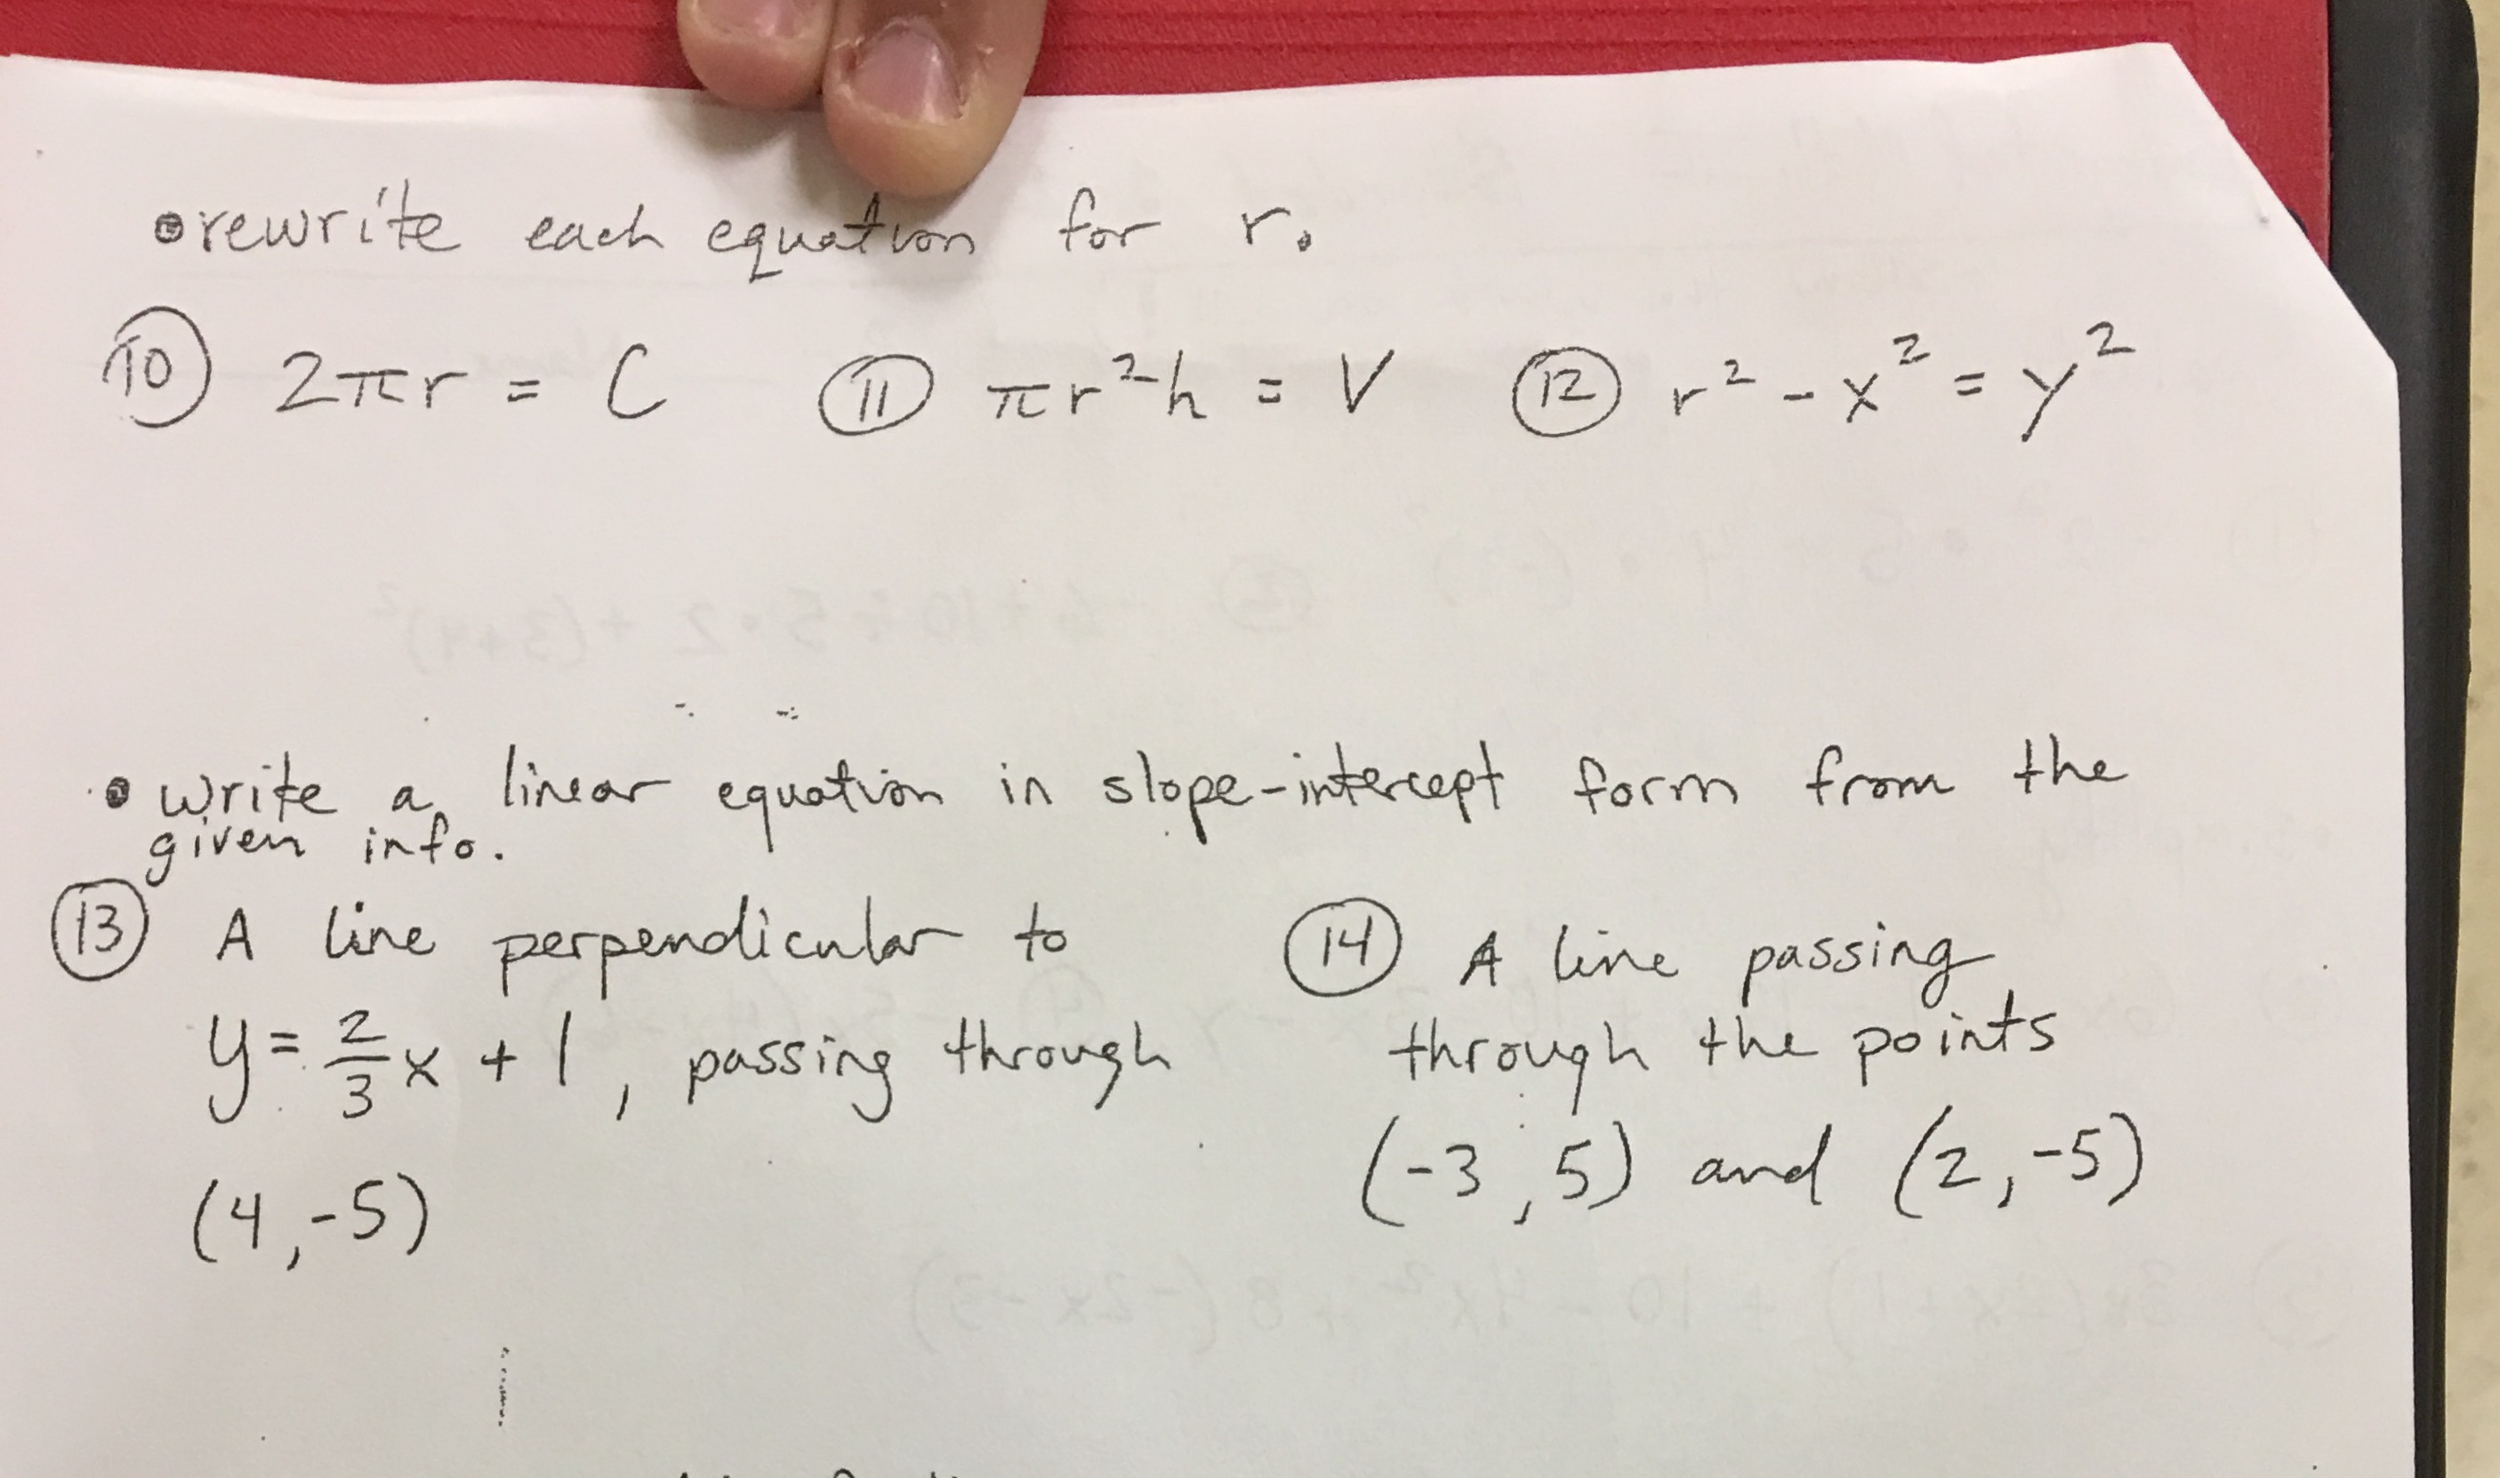 • rewrite each equation for r.
⑩ 2πr = C ⑪ πr²h = V ⑫ r² - x² = y²
• write a linear equation in slope-intercept form from the
given info.
⑬ A line perpendicular to
y = 2/3 x + 1, passing through
(4, -5)
⑭ A line passing
through the points
(-3, 5) and (2, -5)